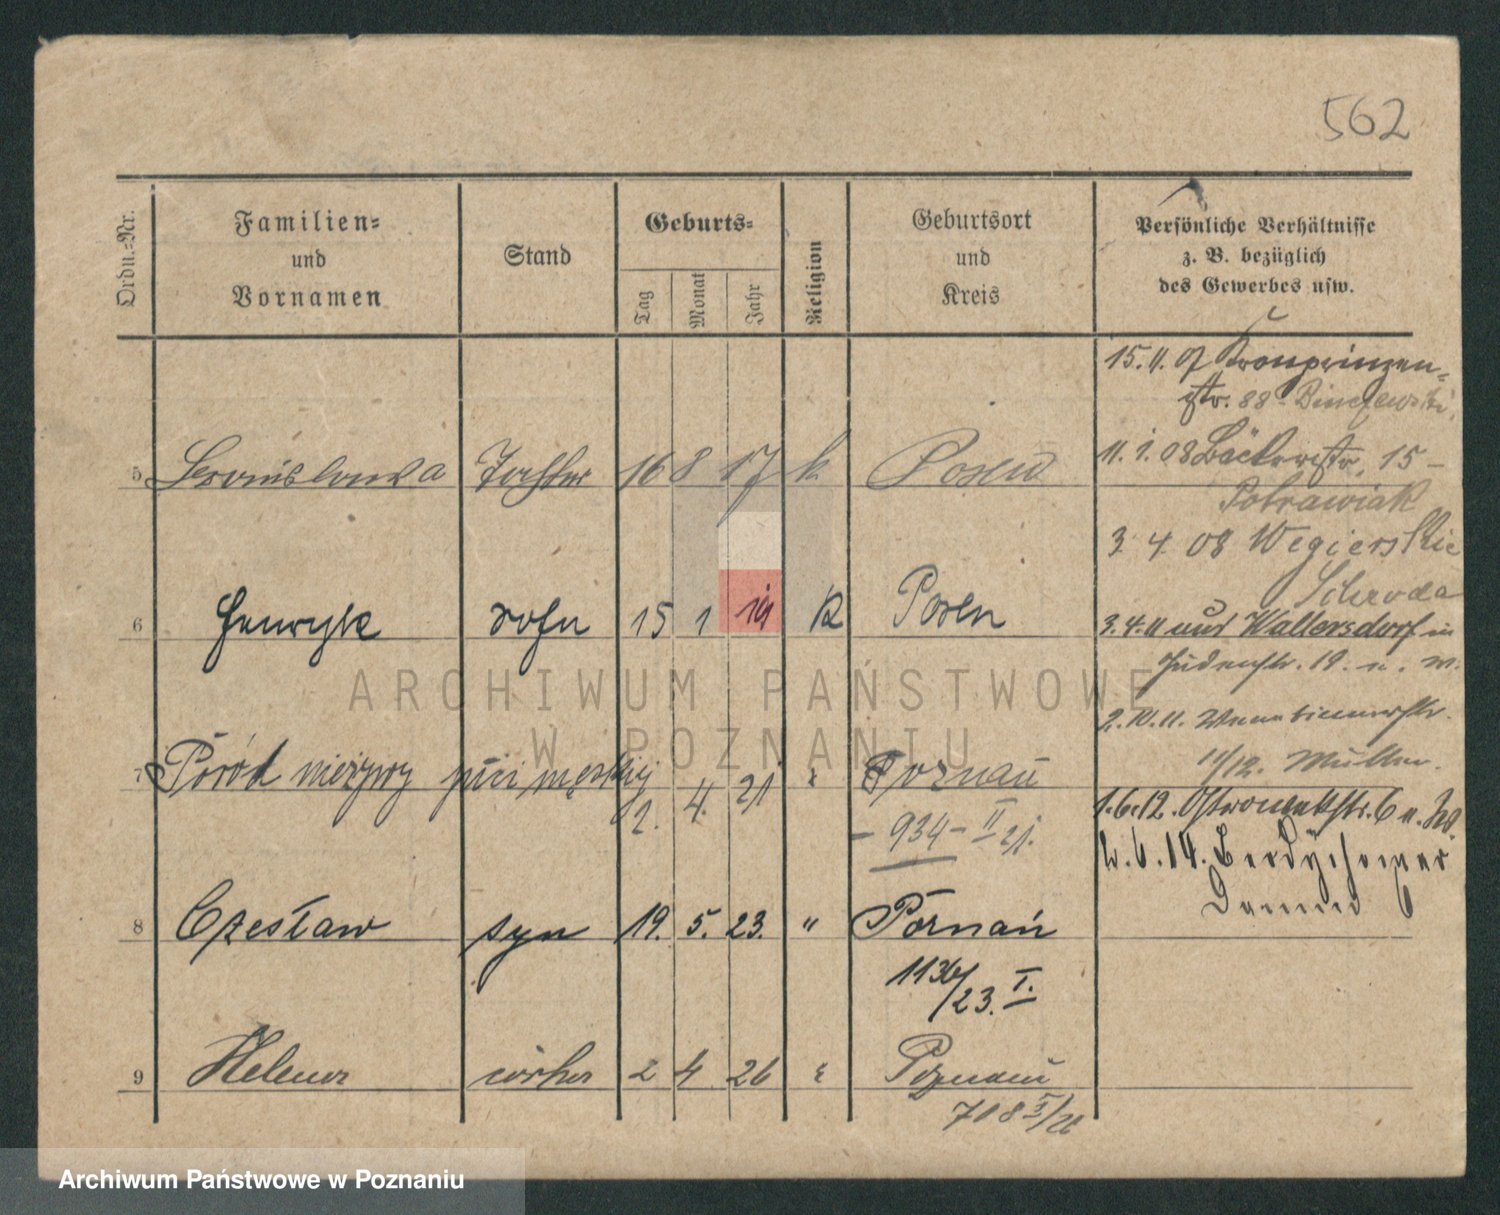 562
Ordn.=Nr.
Familien=
und
Vornamen
Stand
Geburts=
Tag
Monat
Jahr
Religion
Geburtsort
und
Kreis
Persönliche Verhältnisse
z. B. bezüglich
des Gewerbes usw.
5 Bronislawa Tochter 16 8 17 k Posen
6 Henryk Sohn 15 1 19 k Posen
7 Poród nieżywy płci męskiej 12. 4. 21 " Poznań
- 934 - II 21.
8 Czesław syn 19. 5. 23. " Poznań
1136/23. I.
9 Helena córka 2 4 26 " Poznań
708 I/26
15.11.07 Kronprinzen=
str. 88
11.1.08 Bäckerstr. 15 -
Potrawiak
3 4 08 Wegierskie
Schroda
3.4.11 aus Wallersdorf in
Judenstr. 19.
2.10.11.
11/12. Müller.
1.6.12. Ostrowekstr. 6
2.6.14. Berdychower
Damm 6
ARCHIWUM PAŃSTWOWE
W POZNANIU
Archiwum Państwowe w Poznaniu